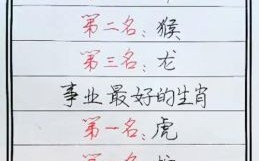 第二名：猴
第三名：龙
事业最好的生肖
第一名：虎